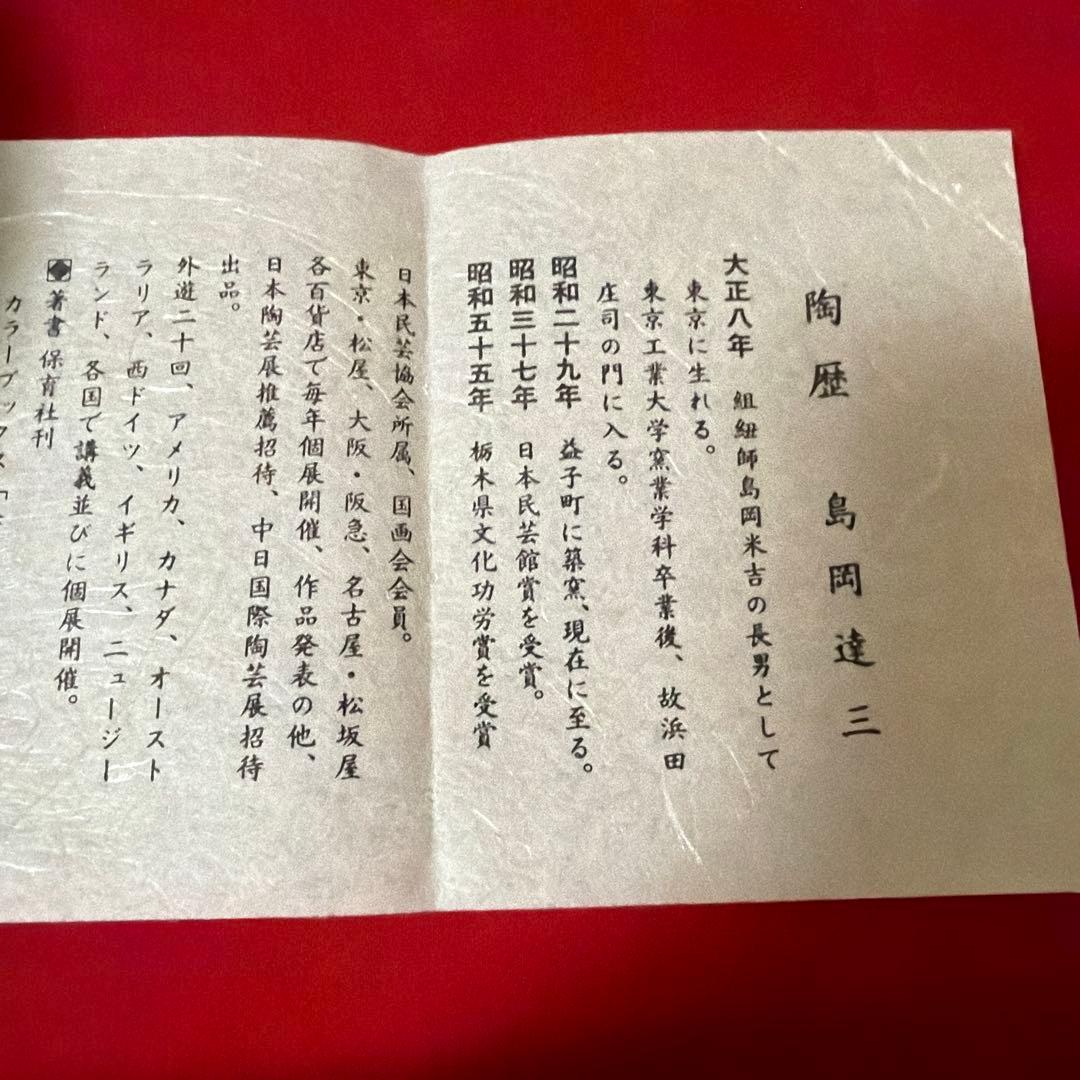 陶歴 島岡達三
大正八年 組紐師島岡米吉の長男として
東京に生れる。
東京工業大学窯業学科卒業後、故浜田
庄司の門に入る。
昭和二十九年 益子町に築窯、現在に至る。
昭和三十七年 日本民芸館賞を受賞。
昭和五十五年 栃木県文化功労賞を受賞
日本民芸協会所属、国画会会員。
東京・松屋、大阪・阪急、名古屋・松坂屋
各百貨店で毎年個展開催、作品発表の他、
日本陶芸展推薦招待、中日国際陶芸展招待
出品。
外遊二十回、アメリカ、カナダ、オースト
ラリア、西ドイツ、イギリス、ニュージー
ランド、各国で講義並びに個展開催。
著書 保育社刊
カラーブックス「